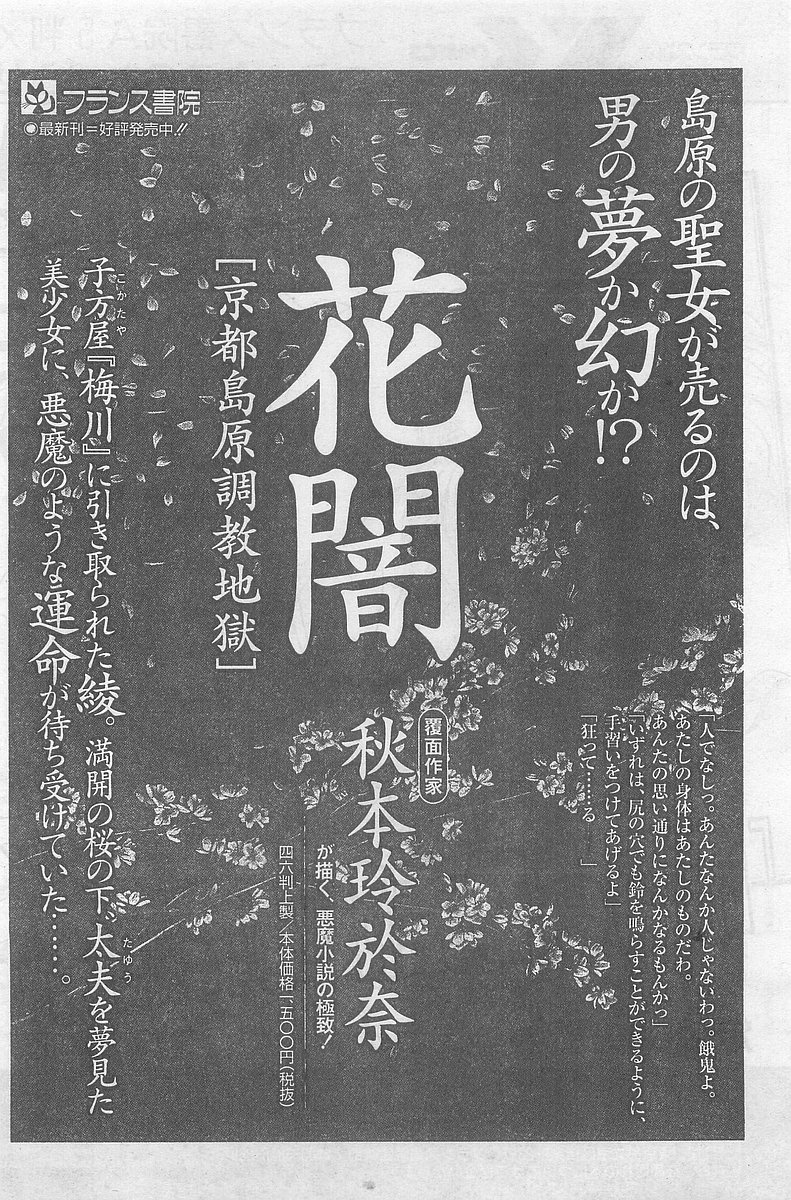 フランス書院
◉最新刊=好評発売中!!
島原の聖女が売るのは、
男の夢か幻か!?
「人でなしっ。あんたなんか人じゃないわっ。餓鬼よ。
あたしの身体はあたしのものだわ。
あんたの思い通りになんかなるもんかっ」
「いずれは、尻の穴でも鈴を鳴らすことができるように、
手習いをつけてあげるよ」
「狂って……る……」
花闇
[京都島原調教地獄]
覆面作家
秋本玲於奈
が描く、悪魔小説の極致!
四六判上製/本体価格一、五〇〇円(税抜)
子方屋『梅川』に引き取られた綾。満開の桜の下、太夫を夢見た
こかたや
たゆう
美少女に、悪魔のような運命が待ち受けていた……。